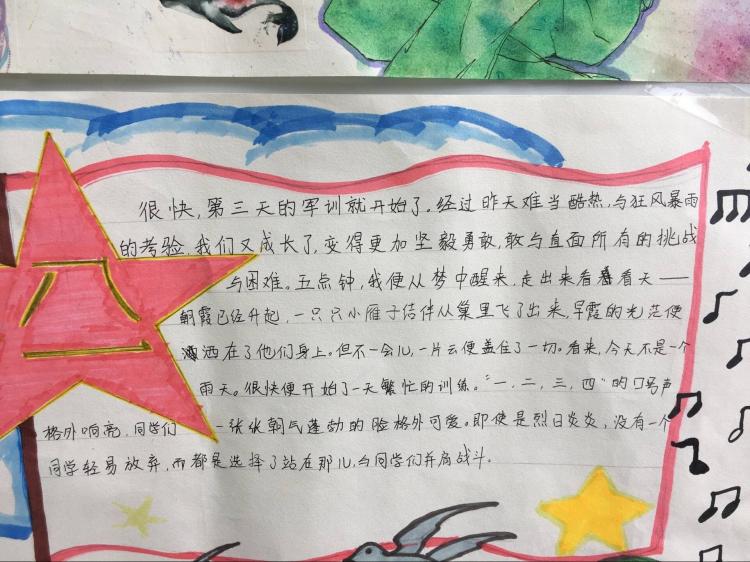 很快,第三天的军训就开始了。经过昨天难当酷热,与狂风暴雨
的考验,我们又成长了,变得更加坚毅勇敢,敢与直面所有的挑战
与困难。五点钟,我便从梦中醒来,走出来看看天——
朝霞已经升起,一只只小雁子结伴从巢里飞了出来,早霞的光茫便
洒在了他们身上。但不一会儿,一片云便盖住了一切。看来,今天不是一个
雨天。很快便开始了一天繁忙的训练。“一.二,三,四”的口号声
格外响亮,同学们一张张朝气蓬勃的脸格外可爱。即使是烈日炎炎,没有一个
同学轻易放弃,而都是选择了站在那儿,与同学们并肩战斗。
八一